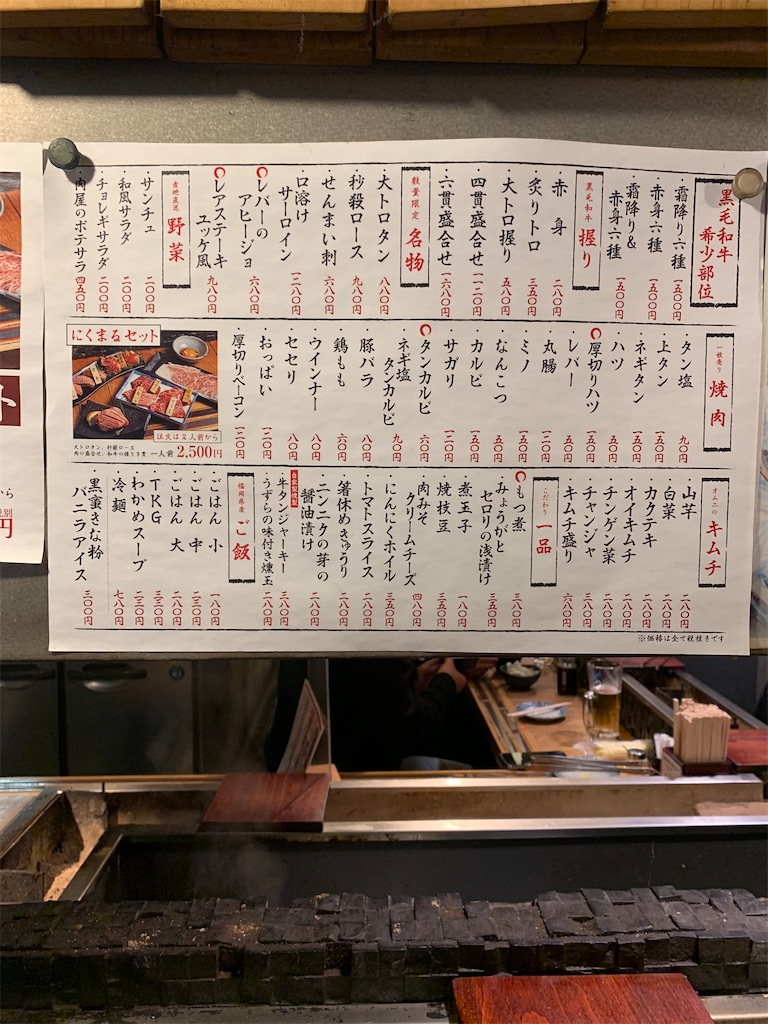 黒毛和牛
希少部位
霜降り六種 一五〇〇円
赤身六種 一五〇〇円
霜降り&
赤身六種 一五〇〇円
黒毛和牛 握り
赤身 二八〇円
炙りトロ 三五〇円
大トロ握り 五八〇円
四貫盛合せ 一一二〇円
六貫盛合せ 一六八〇円
数量限定 名物
大トロタン 八八〇円
秒殺ロース 九八〇円
せんまい刺 六八〇円
口溶け
サーロイン 一二八〇円
レバーの
アヒージョ 六八〇円
レアステーキ
ユッケ風 九八〇円
産地直送 野菜
サンチュ 二〇〇円
和風サラダ 二〇〇円
チョレギサラダ 二〇〇円
肉屋のポテサラ 四五〇円
一枚売り 焼肉
タン塩 九〇円
上タン 一五〇円
ネギタン
ハツ
厚切りハツ
レバー
丸腸
ミノ
なんこつ
カルビ
サガリ
タンカルビ
ネギ塩
タンカルビ 九〇円
豚バラ 八〇円
鶏もも 六〇円
ウインナー 八〇円
セセリ 八〇円
おっぱい 一二〇円
厚切りベーコン 一二〇円
にくまるセット
注文は2人前から
大トロタン、秒殺ロース
肉の盛合せ、和牛の握り2貫 一人前 2,500円
オムニの キムチ
山芋 二八〇円
白菜 二八〇円
カクテキ 二八〇円
オイキムチ 二八〇円
チンゲン菜 二八〇円
チャンジャ 三八〇円
キムチ盛り 六八〇円
こだわり 一品
もつ煮 三八〇円
みょうがと
セロリの浅漬け 三五〇円
煮玉子 一八〇円
焼枝豆 三五〇円
肉みそ
クリームチーズ 四八〇円
にんにくホイル 三五〇円
トマトスライス 二八〇円
箸休めきゅうり 二八〇円
ニンニクの芽の
醤油漬け 二八〇円
牛タンジャーキー 三八〇円
うずらの味付き燻玉 二八〇円
福岡県産 ご飯
ごはん 小 一八〇円
ごはん 中 二三〇円
ごはん 大 二八〇円
TKG 三三〇円
わかめスープ 二三〇円
冷麺 七八〇円
黒蜜きな粉
バニラアイス 三〇〇円
※価格は全て税抜きです
ト
から
円